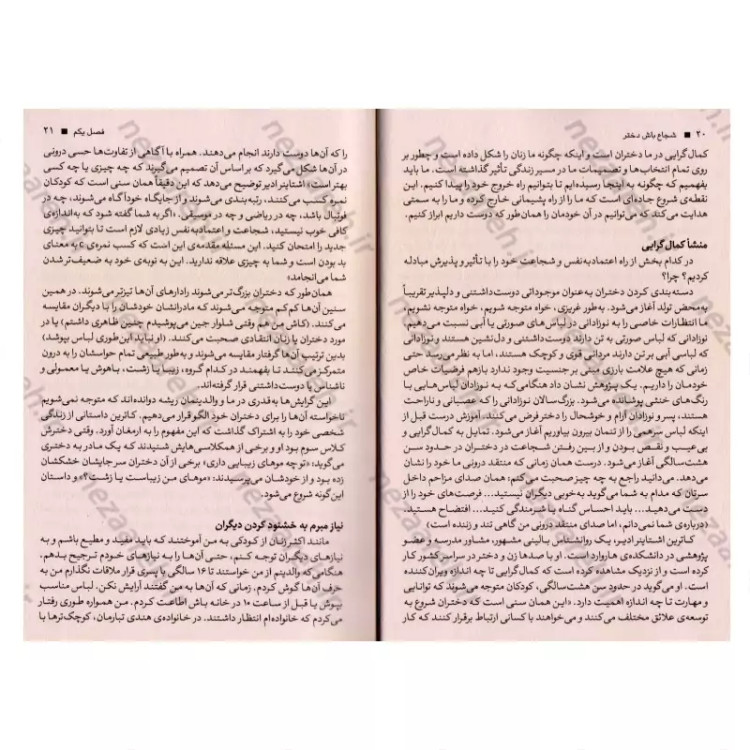 ۲۰ ■ شجاع باش دختر
کمال‌گرایی در ما دختران است و اینکه چگونه ما زنان را شکل داده است و چطور بر
روی تمام انتخاب‌ها و تصمیمات ما در مسیر زندگی تأثیر گذاشته است. ما باید
بفهمیم که چگونه به اینجا رسیده‌ایم تا بتوانیم راه خروج خود را پیدا کنیم. این
نقطه‌ی شروع جاده‌ای است که ما را از راه پشیمانی خارج کرده و ما را به سمتی
هدایت می‌کند که می‌توانیم در آن خودمان را همان‌طور که دوست داریم ابراز کنیم.
منشأ کمال‌گرایی
در کدام بخش از راه اعتمادبه‌نفس و شجاعت خود را با تأثیر و پذیرش مبادله
کردیم؟ چرا؟
دسته بندی کردن دختران به‌عنوان موجوداتی دوست‌داشتنی و دلپذیر تقریباً
به‌محض تولد آغاز می‌شود. به‌طور غریزی، خواه متوجه شویم، خواه متوجه نشویم،
ما انتظارات خاصی را به نوزادانی که در لباس‌های صورتی یا آبی نسبت می‌دهیم
نوزادانی که لباس صورتی به تن دارند دوست‌داشتنی و دل‌نشین هستند و نوزادانی
که لباسی آبی بر تن دارند مردانی قوی و کوچک هستند، اما به نظر می‌رسد حتی
زمانی که هیچ علامت بارزی مبنی بر جنسیت وجود ندارد بازهم فرضیات خاص
خودمان را داریم. یک پژوهش نشان داد هنگامی‌که به نوزادان لباس‌هایی با
رنگ‌های خنثی پوشانده می‌شود، بزرگ‌سالان نوزادانی را که عصبانی و ناراحت
هستند، پسر و نوزادان آرام و خوشحال را دختر فرض می‌کنند. آموزش درست قبل از
اینکه لباس سرهمی را از تنمان بیرون بیاوریم آغاز می‌شود. تمایل به کمال‌گرایی و
بی‌عیب و نقص بودن و از بین رفتن شجاعت در دختران در حدود سن
هشت‌سالگی آغاز می‌شود. درست همان زمانی که منتقد درونی ما خود را نشان
می‌دهد. می‌دانید راجع به چه چیز صحبت می‌کنم، همان صدای مزاحم داخل
سرتان که مدام به شما می‌گوید به‌خوبی دیگران نیستید... فرصت‌های خود را از
دست می‌دهید... باید احساس گناه یا شرمندگی کنید... افتضاح هستید.
(درباره‌ی شما نمی‌دانم، اما صدای منتقد درونی من گاهی تند و زننده است)
کاترین اشتاینر ادیر، یک روانشناس بالینی مشهور، مشاور مدرسه و عضو
پژوهشی در دانشکده‌ی هاروارد است. او با صدها زن و دختر در سراسر کشور کار
کرده است و از نزدیک مشاهده کرده است که کمال‌گرایی تا چه اندازه ویران‌کننده
است. او می‌گوید در حدود سن هشت‌سالگی، کودکان متوجه می‌شوند که توانایی
و مهارت تا چه اندازه اهمیت دارد. «این همان سنی است که دختران شروع به
توسعه‌ی علائق مختلف می‌کنند و می‌خواهند با کسانی ارتباط برقرار کنند که کار
فصل یکم ■ ۲۱
را که آن‌ها دوست دارند انجام می‌دهند. همراه با آگاهی از تفاوت‌ها حسی درونی
در آن‌ها شکل می‌گیرد که بر اساس آن تصمیم می‌گیرند که چه چیزی یا چه کسی
بهتر است.» اشتاینر ادیر توضیح می‌دهد که این دقیقاً همان سنی است که کودکان
نمره کسب می‌کنند، رتبه‌بندی می‌شوند و از جایگاه خودآگاه می‌شوند، چه در
فوتبال باشد، چه در ریاضی و چه در موسیقی. «اگر به شما گفته شود که به‌اندازه‌ی
کافی خوب نیستید، شجاعت و اعتمادبه‌نفس زیادی لازم است تا بتوانید چیزی
جدید را امتحان کنید. این مسئله مقدمه‌ی این است که کسب نمره‌ی c به معنای
بد بودن است و شما به چیزی علاقه ندارید. این به نوبه‌ی خود به ضعیف‌تر شدن
شما می‌انجامد»
همان‌طور که دختران بزرگ‌تر می‌شوند رادارهای آن‌ها تیزتر می‌شوند. در همین
سنین آن‌ها کم‌کم متوجه می‌شوند که مادرانشان خودشان را با دیگران مقایسه
می‌کنند. (کاش من هم وقتی شلوار جین می‌پوشیدم چنین ظاهری داشتم) یا در
مورد دختران یا زنان انتقادی صحبت می‌کنند. (او نباید این‌طوری لباس بپوشد)
بدین ترتیب آن‌ها گرفتار مقایسه می‌شوند و به‌طور طبیعی تمام حواسشان را به درون
متمرکز می‌کنند تا بفهمند در کدام گروه، زیبا یا زشت، باهوش یا معمولی و
ناشناس یا دوست‌داشتنی قرار گرفته‌اند.
این گرایش‌ها به‌قدری در ما و والدینمان ریشه دوانده‌اند که متوجه نمی‌شویم
ناخواسته آن‌ها را برای دختران خود الگو قرار می‌دهیم. کاترین داستانی از زندگی
شخصی خود را به اشتراک گذاشت که این مفهوم را به ارمغان آورد. وقتی دخترش
کلاس سوم بود او و برخی از همکلاسی‌هایش شنیدند که یک مادر به دختری
می‌گوید: «تو چه موهای زیبایی داری» برخی از آن دختران سرجایشان خشکشان
زده بود و از خودشان می‌پرسیدند: «موهای من زیباست یا زشت؟» و داستان
این‌گونه شروع می‌شود.
نیاز مبرم به خشنود کردن دیگران
مانند اکثر زنان از کودکی به من آموختند که باید مفید و مطیع باشم و به
نیازهای دیگران توجه کنم، حتی آن‌ها را به نیازهای خودم ترجیح بدهم.
هنگامی‌که والدینم از من خواستند تا ۱۶ سالگی با پسری قرار ملاقات نگذارم من به
حرف آن‌ها گوش کردم. زمانی که آن‌ها به من گفتند آرایش نکن، لباس مناسب
بپوش یا قبل از ساعت ۱۰ در خانه باش اطاعت کردم. من همواره طوری رفتار
می‌کردم که خانواده‌ام انتظار داشتند. در خانواده‌ی هندی تبارمان، کوچک‌ترها با
nezaareh.ir